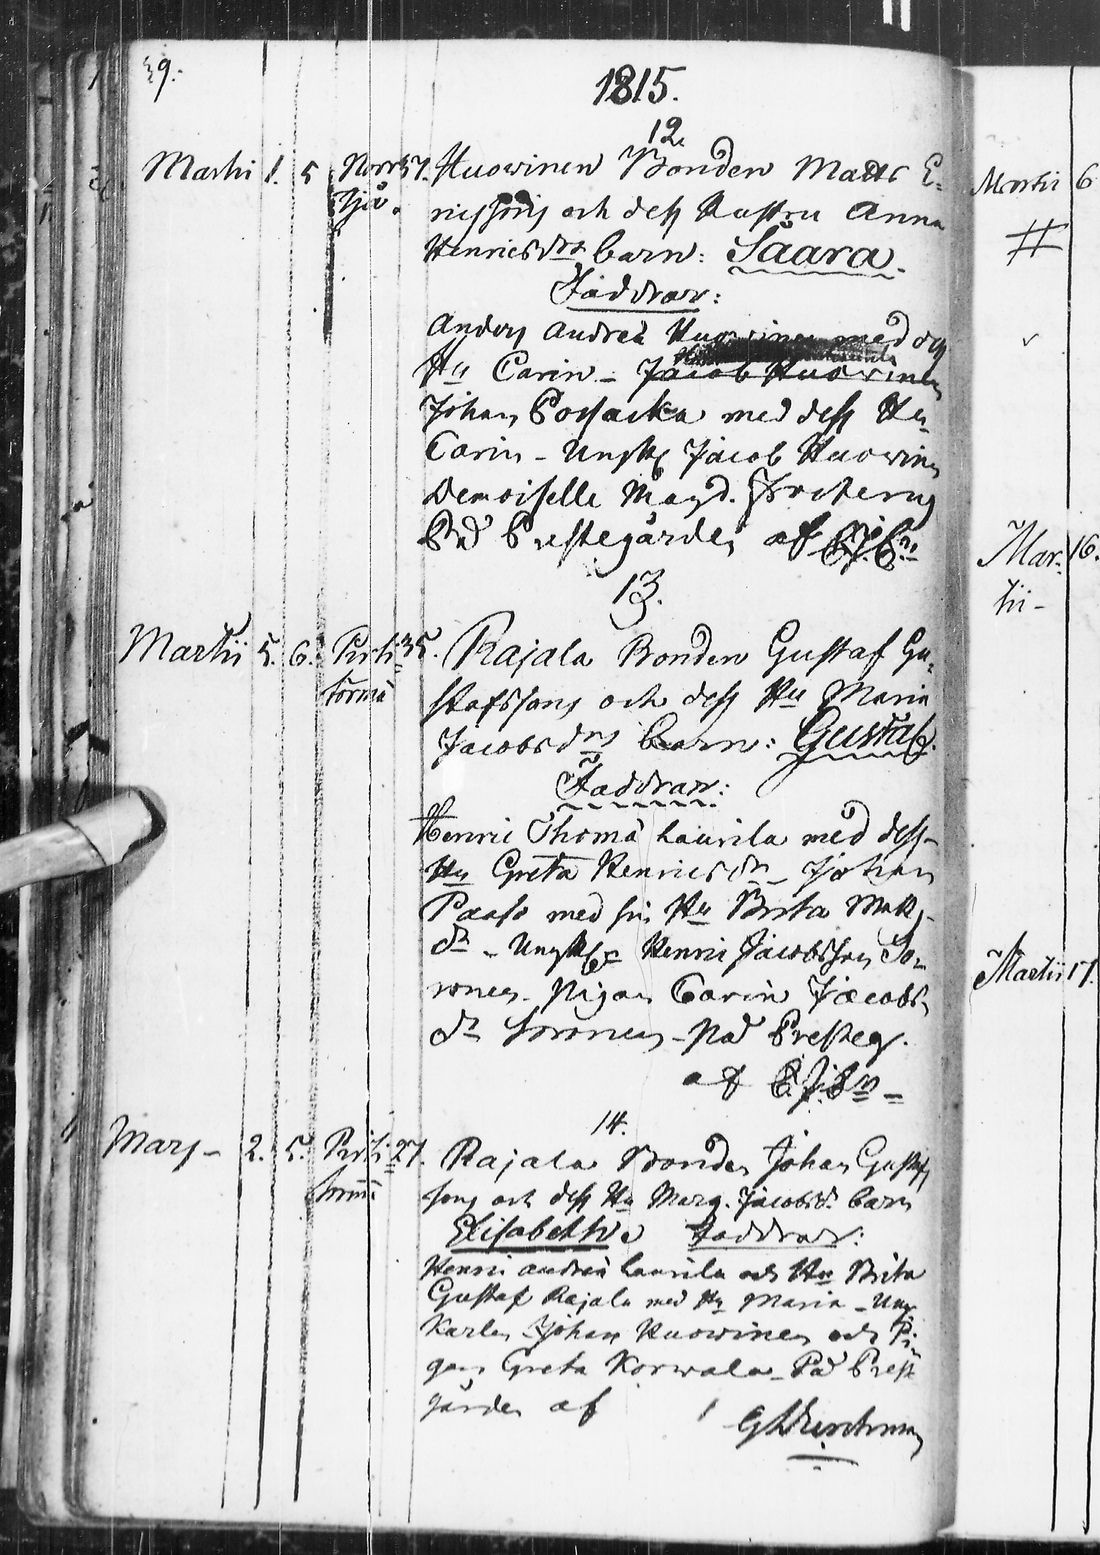 39.
1815.
12
Martii 1. 5 Norr 37. Huowinen Bonden Matts E-
sjä. och dess Hustru Anna
Henricsdrs barn: Saara.
Faddrar:
Anders Andreä Huowinen med dess
Hu Carin - Jacob Huowinen
Johan Possacka med dess Hu
Carin - Ungk Jacob Huowinen
Demoiselle Magd.
På Prestegården af
13.
Martii 5. 6. 35. Rajala Bonden Gustaf Gu-
stafssons och dess Hu Maria
Jacobsdrs barn: Gustaf.
Faddrar:
Henric Thomä Laurila med dess
Hu Greta Henricsdr - Johan
Paaso med sin Hu Brita Matts
dr - Ungk Henric Jacobsson So-
ronen - Pigan Carin Jacobs
dr Soronen - På Presteg.
af
14.
Mars - 2. 5. 27. Rajala Bonden Johan Gustaf
sons och dess Hu Marg. Jacobsd. barn
Elisabeth Faddrar:
Henric Andreä Laurila och Hu Brita
Gustaf Rajala med Hu Maria - Ung
Karlen Johan Huowinen och Pi-
gan Greta Korwala - På Prest
gården af
Martii 6
#
Mar- 16.
tii -
Martii 17.